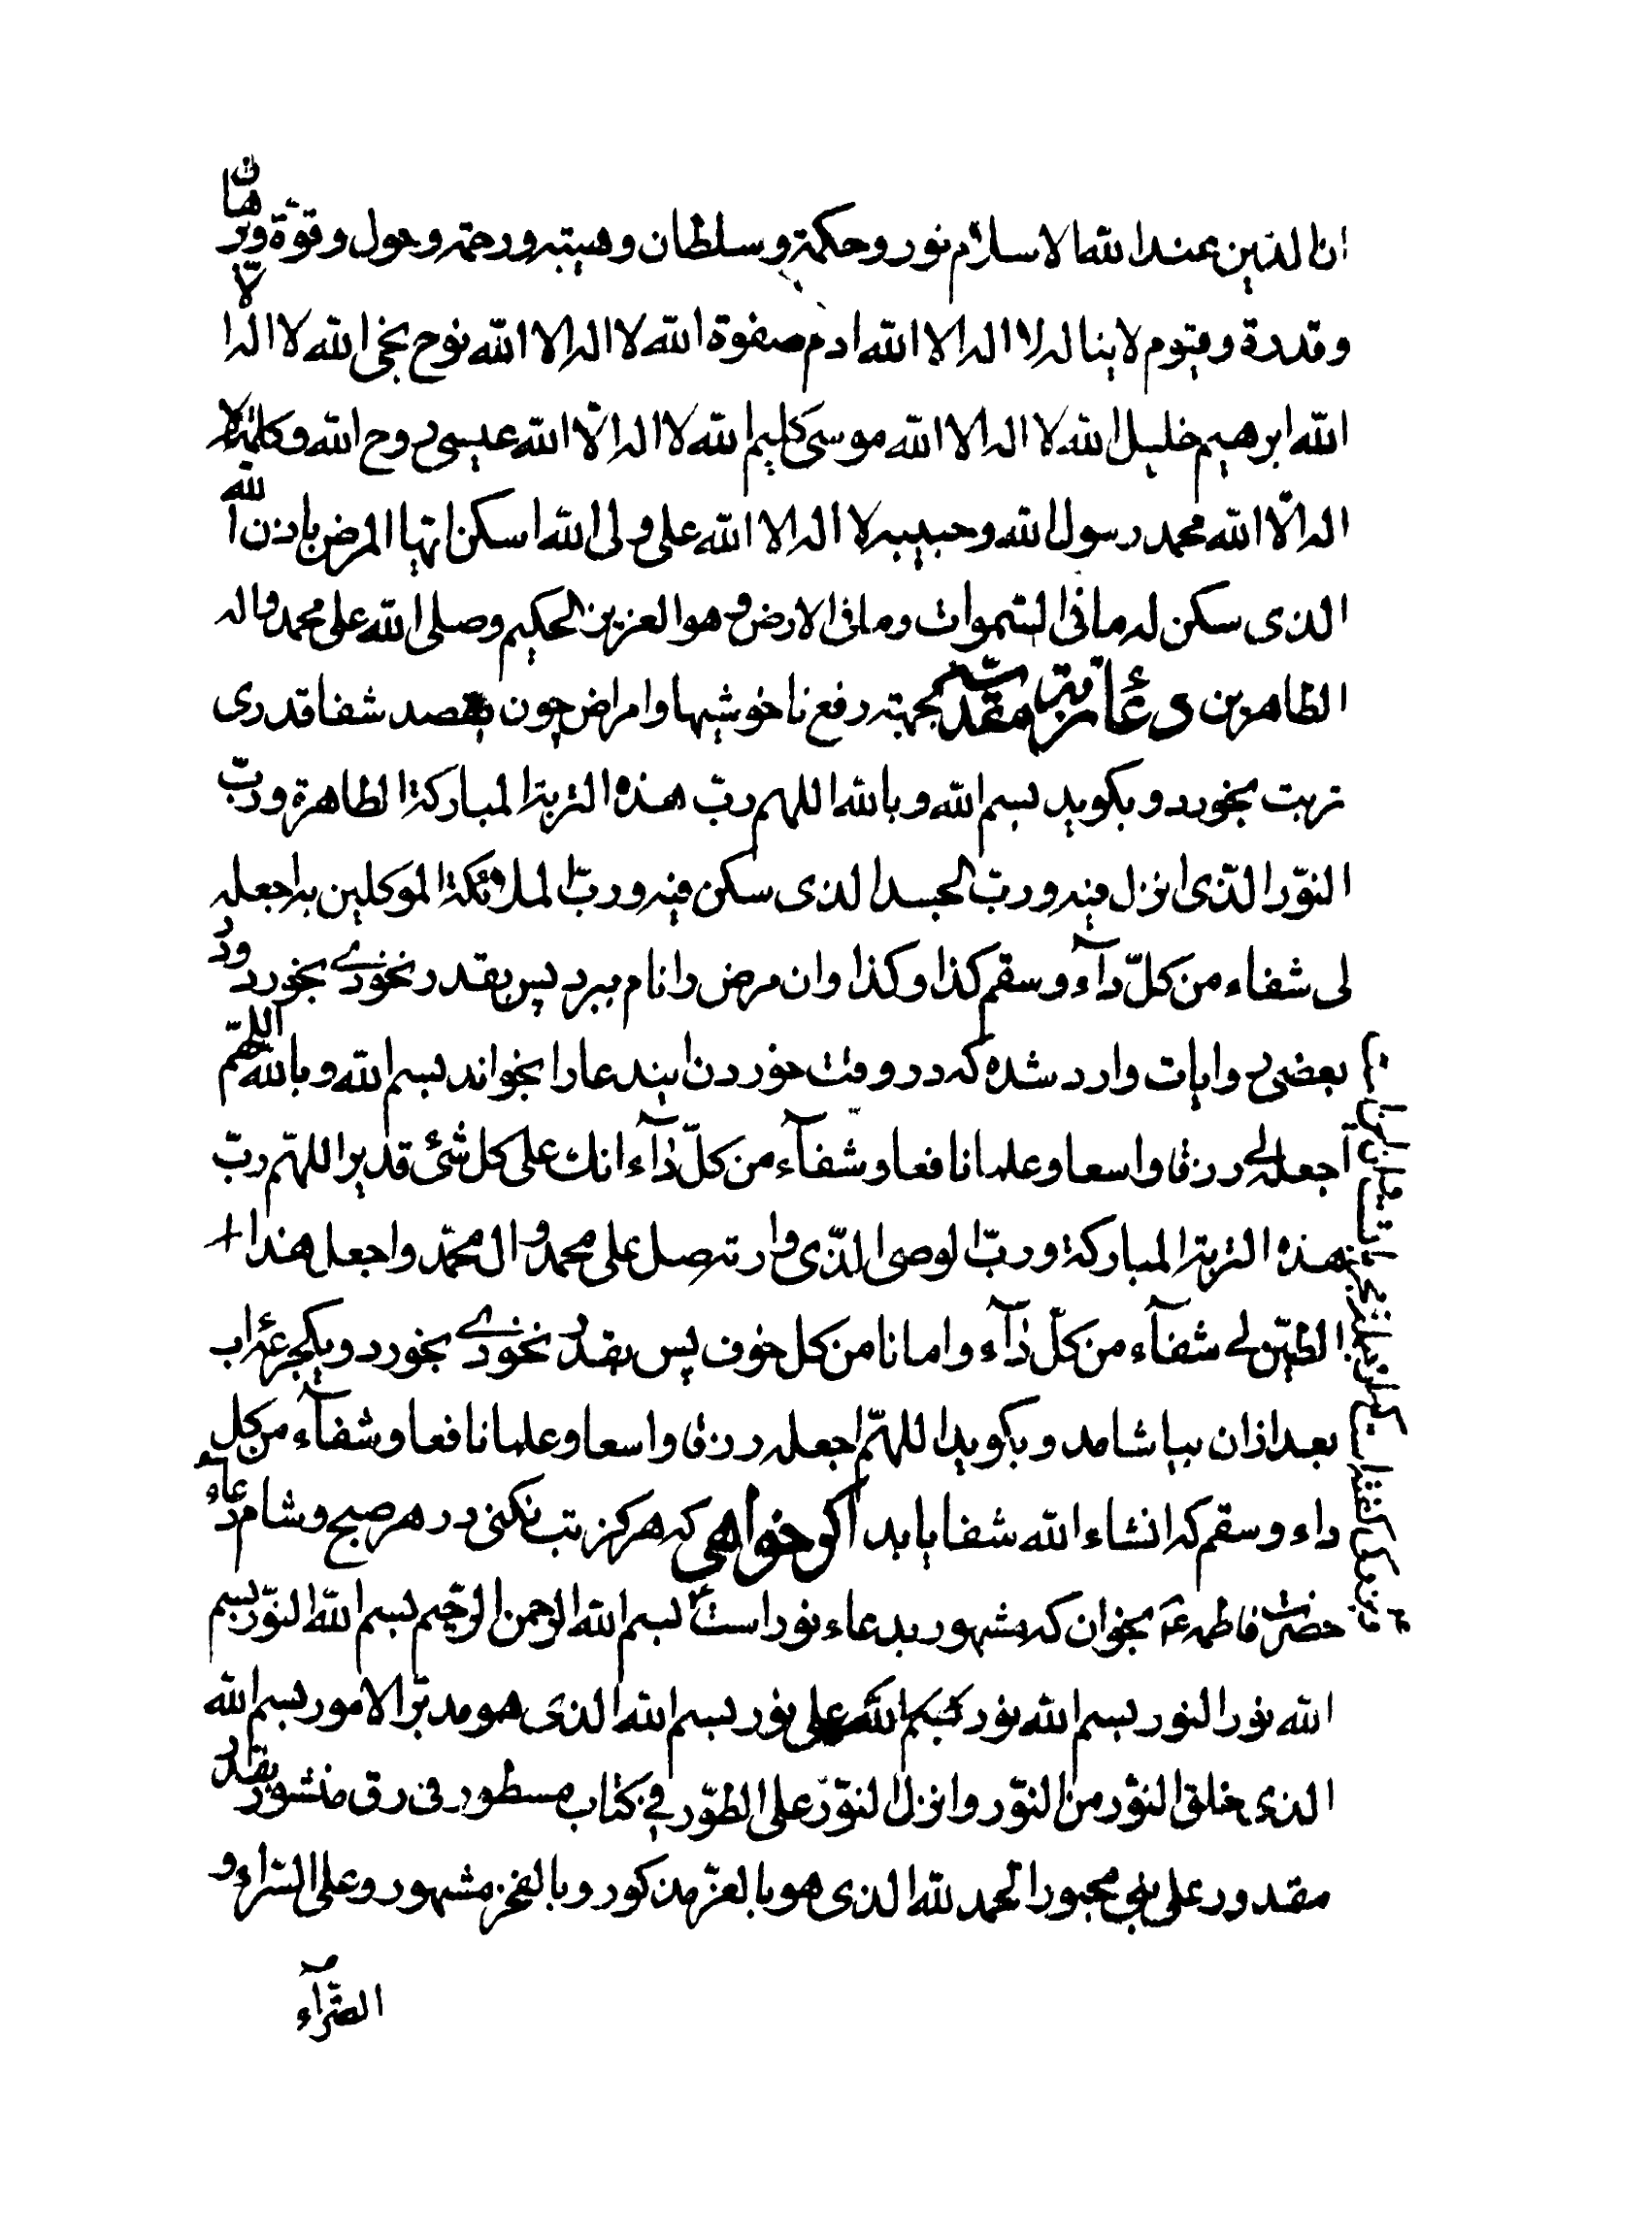 ان الدین عند الله الاسلام نور و حکمة و سلطان و هیبته و رحمة و حول و قوة و برهان
و قدرة و قیوم لاینا له لا اله الا الله ادم صفوة الله لا اله الا الله نوح نجی الله لا اله الا
الله ابرهیم خلیل الله لا اله الا الله موسی کلیم الله لا اله الّا الله عیسی روح الله و کلمته لا
اله الّا الله محمد رسول الله و حبیبه لا اله الا الله علی ولی الله اسکن ایتها المرض باذن الله
الذی سکن له ما فی السّموات و ما فی الارض و هو العزیز الحکیم و صلی الله علی محمد و اله
الطاهرین دعائ تربة مقدسه بجهته رفع ناخوشیها و امراض چون بقصد شفا قدری
تربت بخورد و بکوید بسم الله و بالله اللهم ربّ هذه التربة المبارکة الطاهرة و ربّ
النّور الّذی انزل فیه و ربّ الجسد الذی سکن فیه و ربّ الملائکة الموکلین به اجعله
لی شفاء من کلّ دآء و سقم کذا و کذا و ان مرض را نام ببرد پس بقدر نخودے بخورد و در
بعضی روایات وارد شده که در وقت خوردن ایندعا را بخواند بسم الله و بالله اللهمّ
آجعله لے رزقا واسعا و علما نافعا و شفآء من کلّ دآء انك علی کل شئ قدیر اللهمّ ربّ
هذه التربة المبارکة و ربّ الوصی الّذی وارته صل علی محمد و ال محمّد و اجعل هذا
الطین لے شفآء من کلّ دآء و امانا من کل خوف پس بقدر نخودے بخورد و یکجرعه اب
بعد ازان بیاشامد و بکوید اللهمّ اجعله رزقا واسعا و علما نافعا و شفآء من کل
داء و سقم که انشاء الله شفا یابد اکر خواهی که هرکز تب نکنی در هر صبح و شام دعاء
حضرت فاطمه ع بخوان که مشهور بدعاء نور است بسم الله الرحمن الرحیم بسم الله النّور بسم
الله نور النور بسم الله نور علی نور بسم الله الذی هو مدبّر الامور بسم الله
الذی خلق النّور من النّور و انزل النّور علی الطّور فی کتاب مسطور فی رق منشور بقدر
مقدور علی نبی محبور الحمد لله الذی هو بالعزّ مذکور و بالفخر مشهور و علی السّراء و
الضّرآء